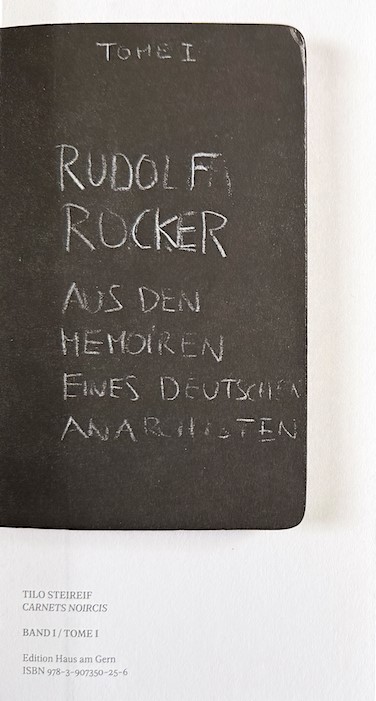 TOME I
RUDOLF
ROCKER
AUS DEN
MEMOIREN
EINES DEUTSCHEN
ANARCHISTEN
TILO STEIREIF
CARNETS NOIRCIS
BAND I / TOME I
Edition Haus am Gern
ISBN 978-3-907350-25-6